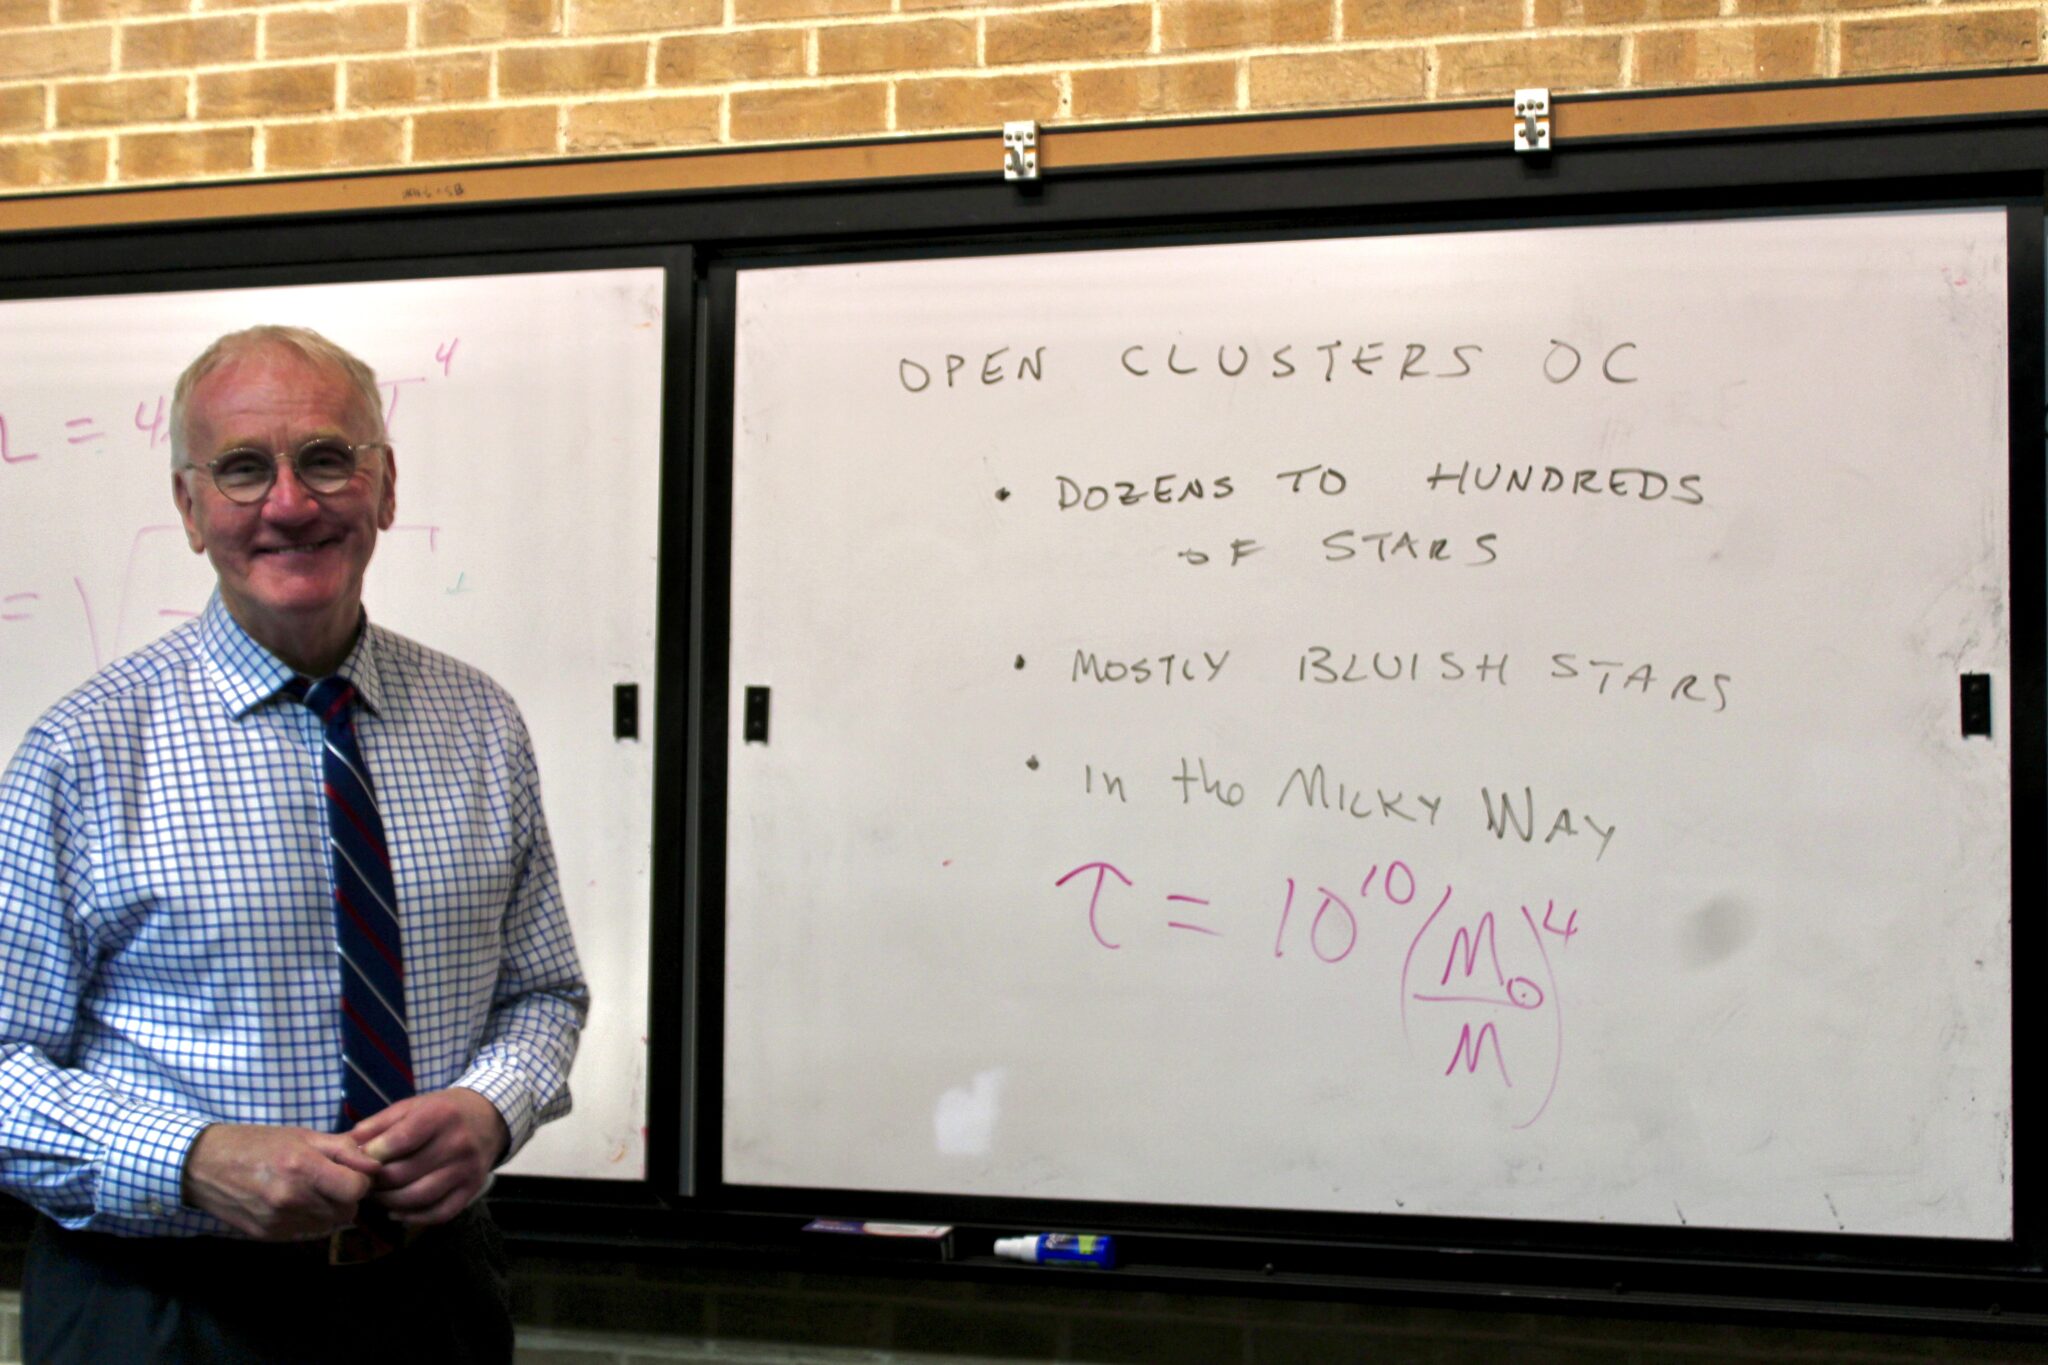 L = 4 T⁴
= √
OPEN CLUSTERS OC
• DOZENS TO HUNDREDS
OF STARS
• MOSTLY BLUISH STARS
• In the MILKY WAY
τ = 10¹⁰ (M⊙/M)⁴